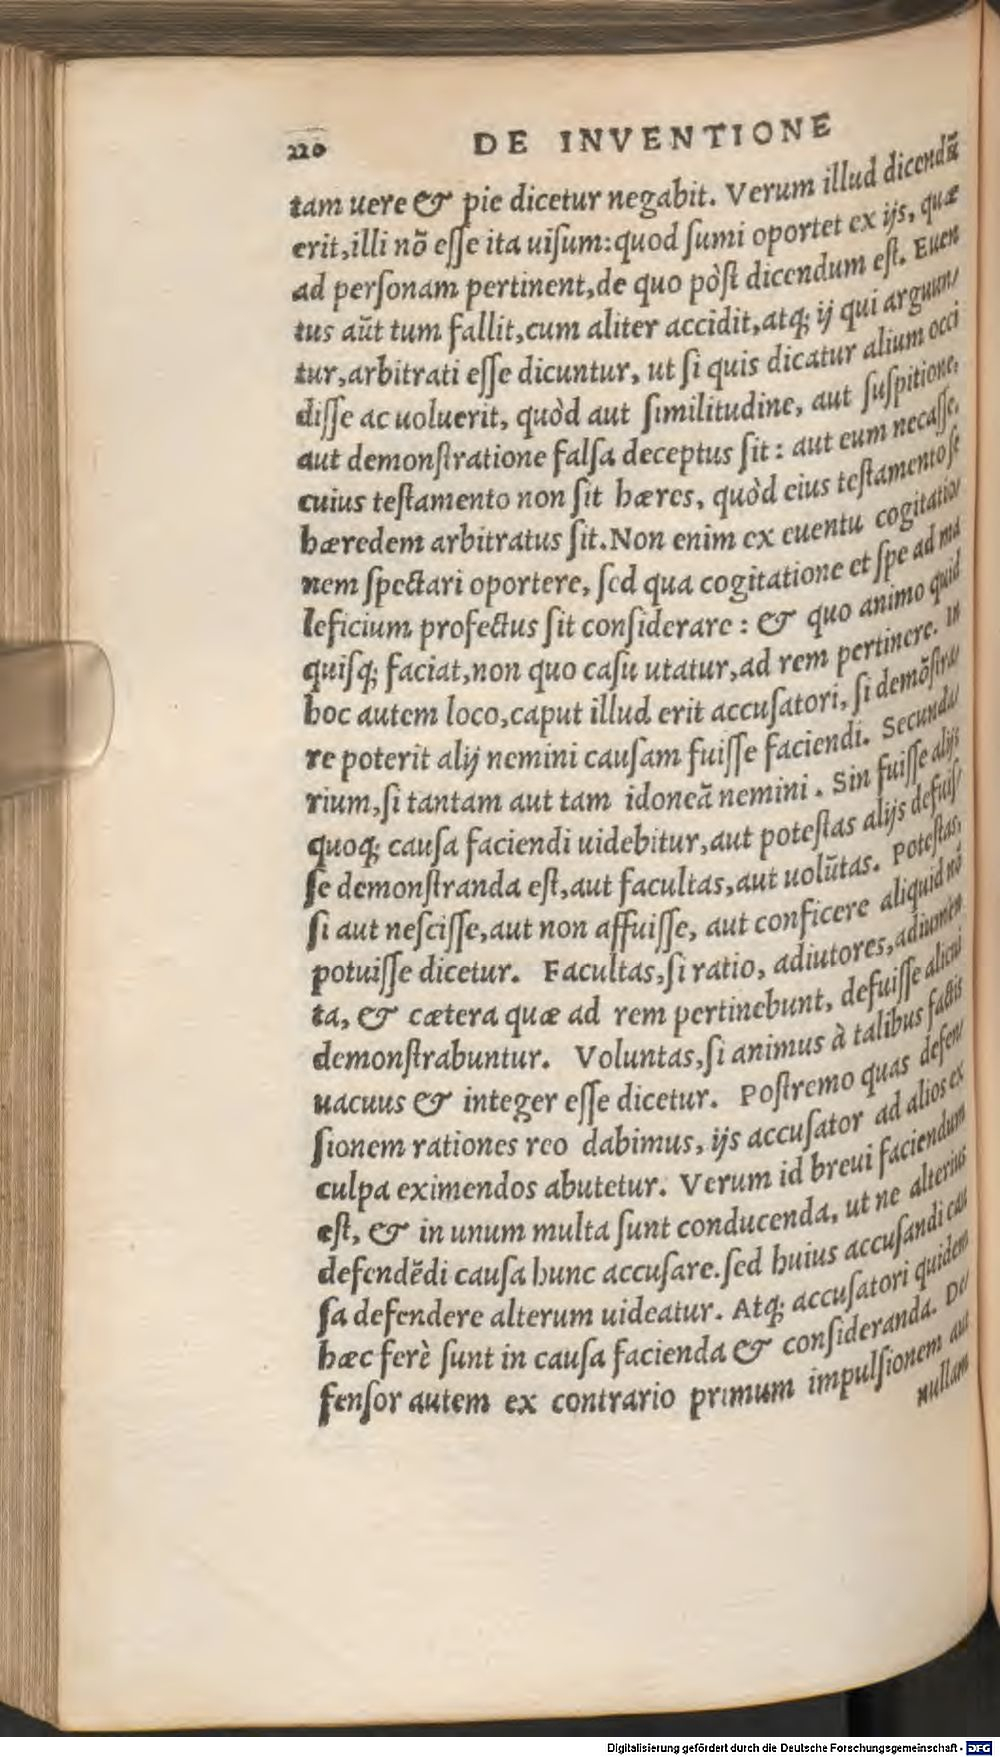 220 DE INVENTIONE
tam uere & pie dicetur negabit. Verum illud dicendũ
erit,illi nõ eſſe ita uiſum:quod ſumi oportet ex ijs, quæ
ad perſonam pertinent,de quo pòſt dicendum eſt. Euen
tus aũt tum fallit,cum aliter accidit,atq; ij qui arguun/
tur,arbitrati eſſe dicuntur, ut ſi quis dicatur alium occi
diſſe ac uoluerit, quòd aut ſimilitudine, aut ſuſpitione,
aut demonſtratione falſa deceptus ſit: aut eum necaſſe,
cuius teſtamento non ſit hæres, quòd eius teſtamento ſe
hæredem arbitratus ſit.Non enim ex euentu cogitatio/
nem ſpectari oportere, ſed qua cogitatione et ſpe ad ma
leficium profectus ſit conſiderare: & quo animo quid
quiſq; faciat,non quo caſu utatur,ad rem pertinere. In
hoc autem loco,caput illud erit accuſatori, ſi demõſtra/
re poterit alij nemini cauſam fuiſſe faciendi. Secunda/
rium,ſi tantam aut tam idoneã nemini. Sin fuiſſe alijs
quoq; cauſa faciendi uidebitur,aut poteſtas alijs defuiſ/
ſe demonſtranda eſt,aut facultas,aut uolũtas. Poteſtas,
ſi aut neſciſſe,aut non affuiſſe, aut conficere aliquid nõ
potuiſſe dicetur. Facultas,ſi ratio, adiutores,adiumen
ta, & cætera quæ ad rem pertinebunt, defuiſſe alicui
demonſtrabuntur. Voluntas,ſi animus à talibus factis
uacuus & integer eſſe dicetur. Poſtremo quas defen/
ſionem rationes reo dabimus, ijs accuſator ad alios ex
culpa eximendos abutetur. Verum id breui faciendum
eſt, & in unum multa ſunt conducenda, ut ne alterius
defendẽdi cauſa hunc accuſare.ſed huius accuſandi cau
ſa defendere alterum uideatur. Atq; accuſatori quidem
hæc ferè ſunt in cauſa facienda & conſideranda. De/
fenſor autem ex contrario primum impulſionem aut
nullam
Digitalisierung gefördert durch die Deutsche Forschungsgemeinschaft - DFG